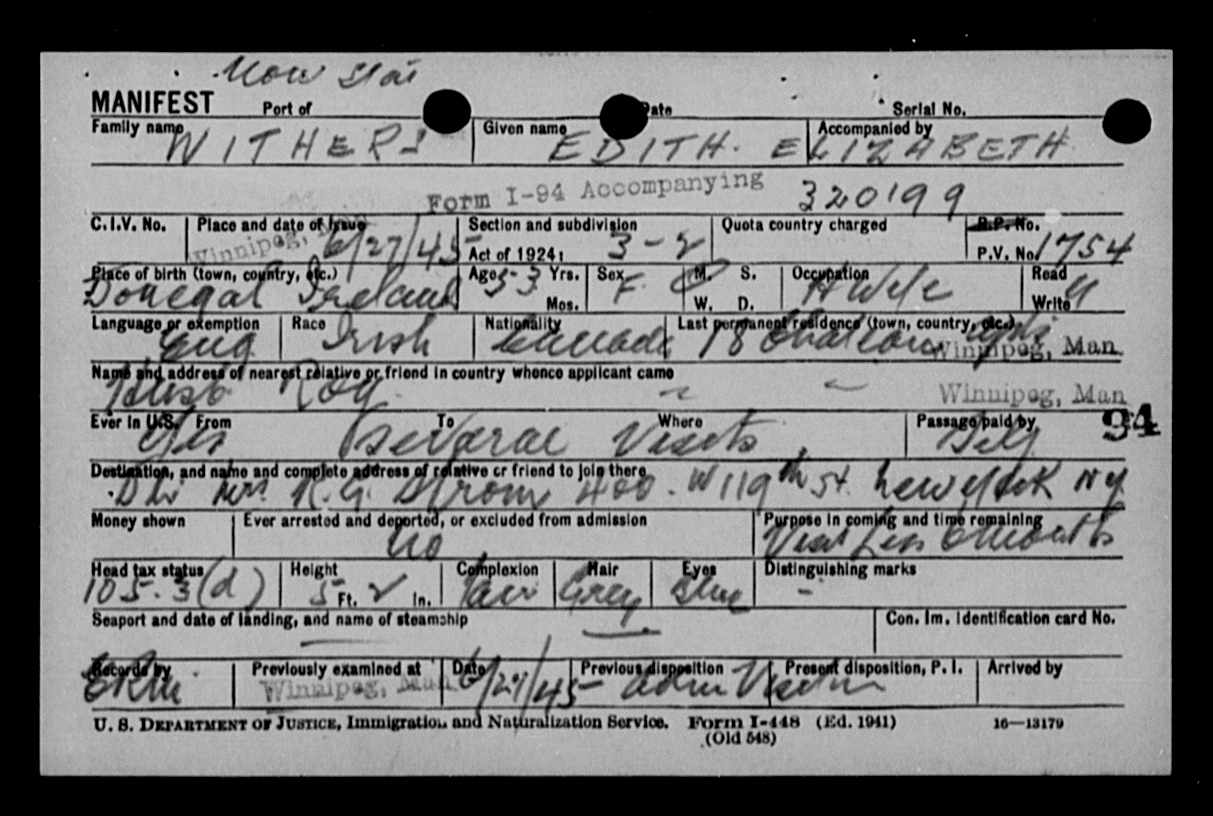 MANIFEST Port of Date Serial No.
Family name WITHERS Given name EDITH. ELIZABETH Accompanied by
Form I-94 Accompanying 320199
C.I.V. No. Place and date of issue Winnipeg, Man 6/27/45 Section and subdivision Act of 1924: 3-2 Quota country charged R.P. No. P.V. No. 1754
Place of birth (town, country, etc.) Donegal Ireland Age 53 Yrs. Mos. Sex F. M. S. W. D. Occupation HWife Read Write
Language or exemption Eng Race Irish Nationality Canada Last permanent residence (town, country, etc.) 18 Winnipeg, Man.
Name and address of nearest relative or friend in country whence applicant came Husb Roy. Winnipeg, Man
Ever in U.S. Yes From To Several Where Visits Passage paid by Self 94
Destination, and name and complete address of relative or friend to join there Mrs. R.G. Strom 400. W 119th St. New York NY
Money shown Ever arrested and deported, or excluded from admission No Purpose in coming and time remaining Visit Less 6 Months
Head tax status 105.3(d) Height 5 Ft. 2 In. Complexion Fair Hair Grey Eyes Blue Distinguishing marks -
Seaport and date of landing, and name of steamship Con. Im. Identification card No.
Records by Previously examined at Winnipeg, Man. Date 6/27/45 Previous disposition Adm Present disposition, P. I. Arrived by
U. S. DEPARTMENT OF JUSTICE, Immigration and Naturalization Service. Form I-448 (Ed. 1941) 16—13179
(Old 548)